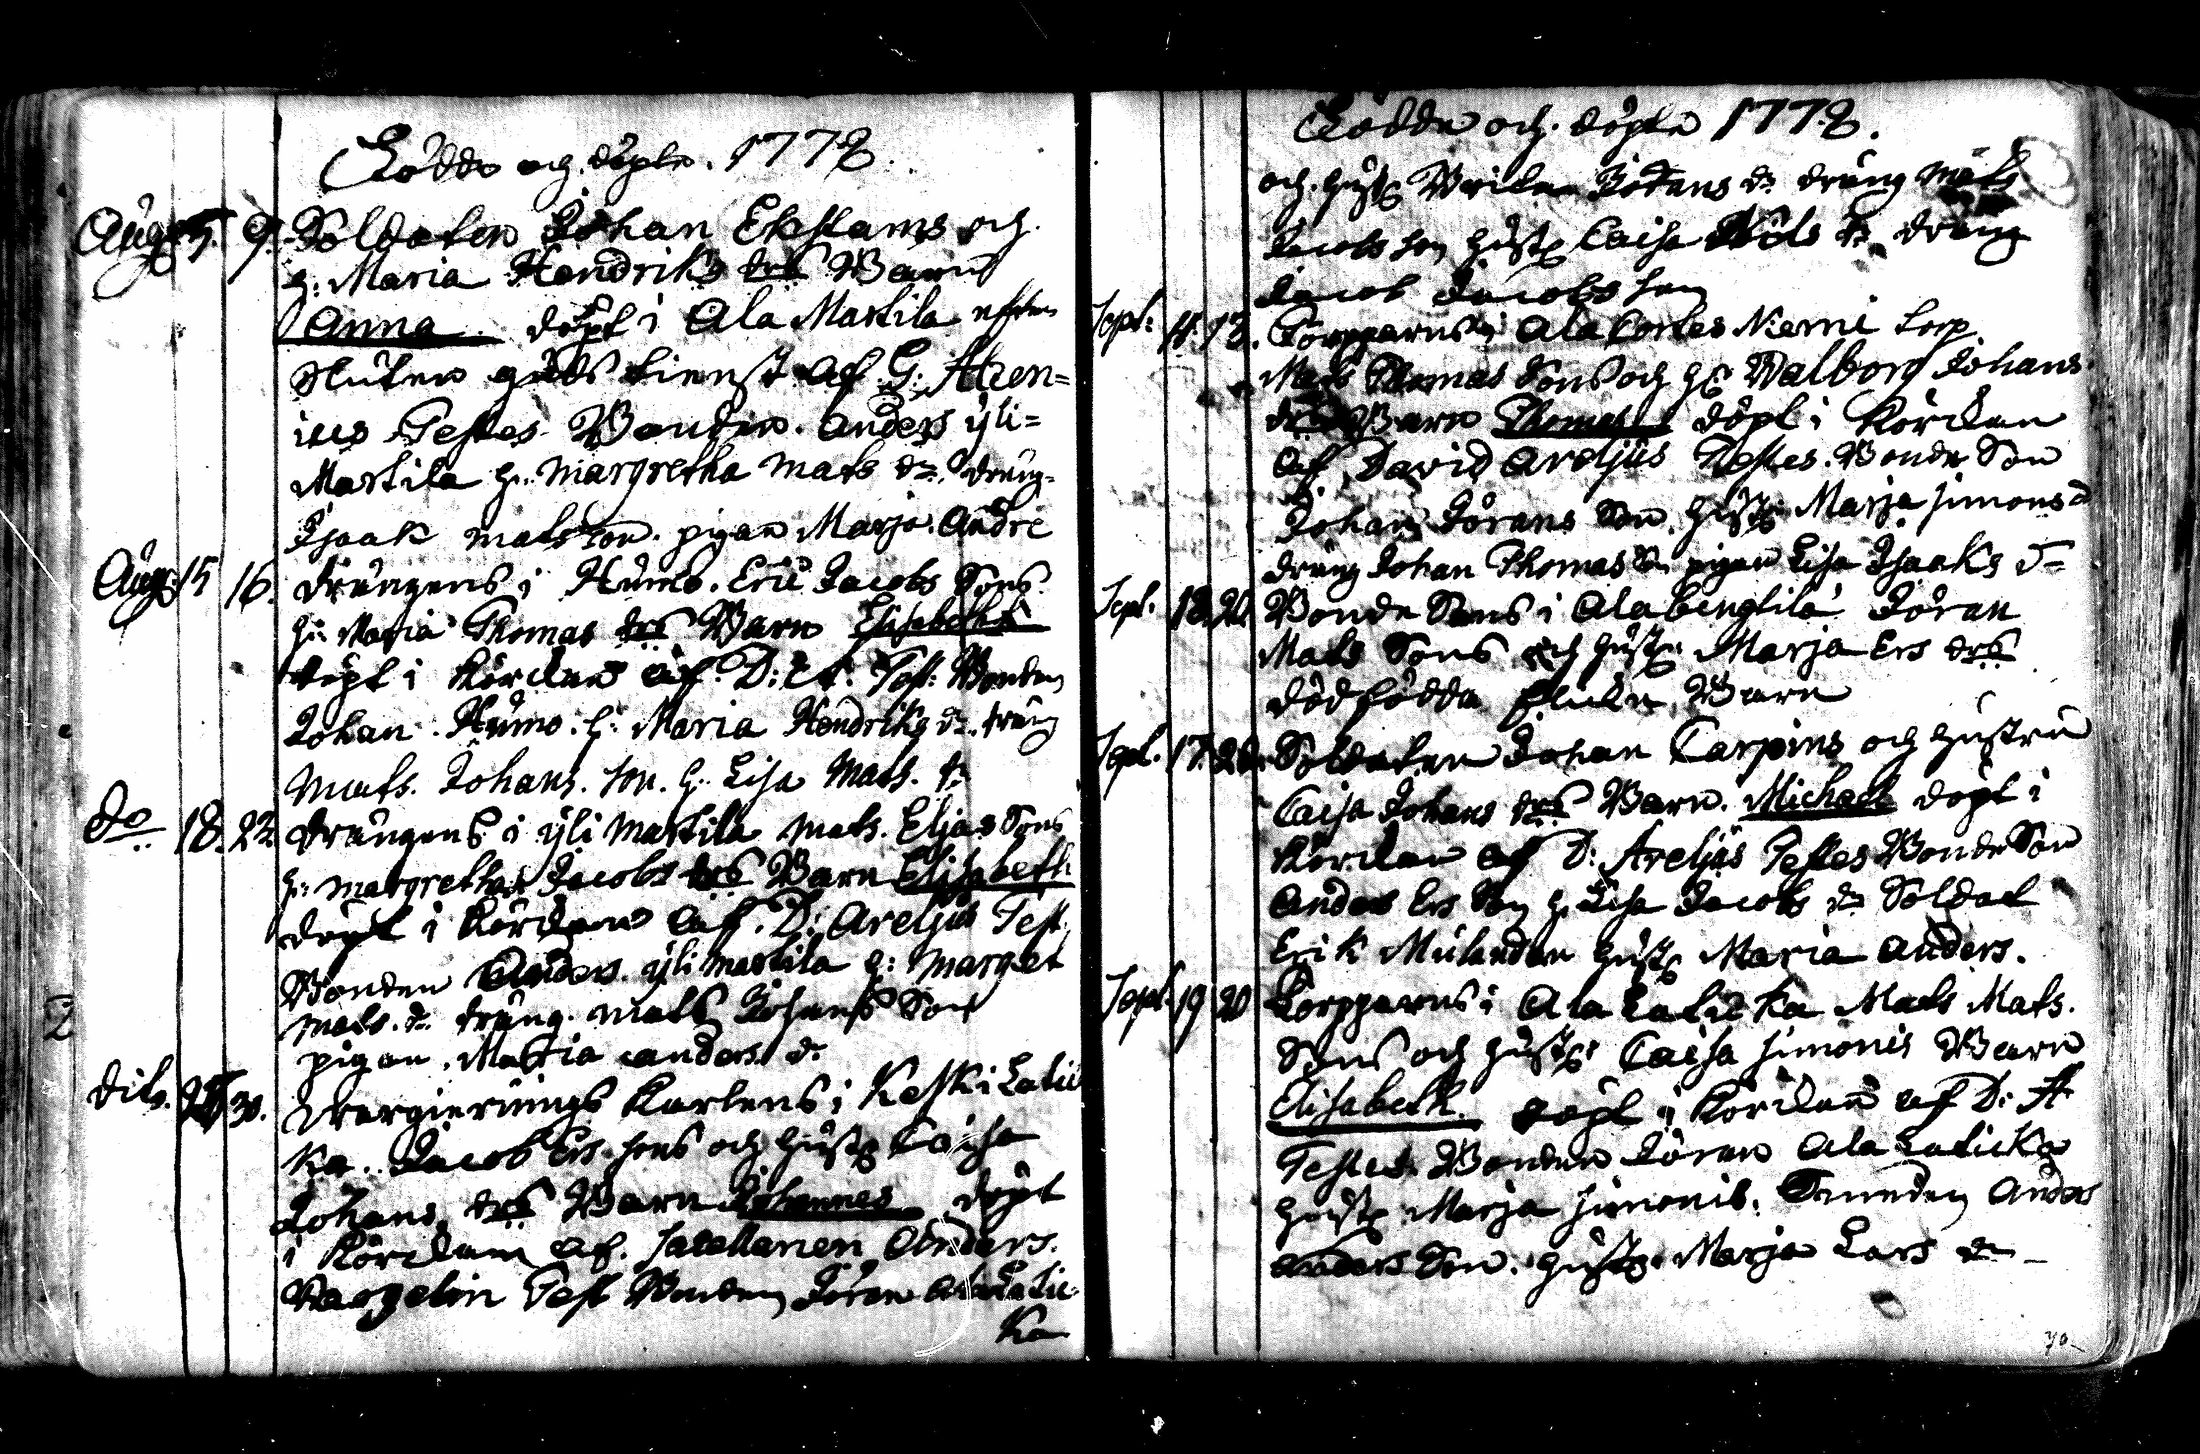 Födde och döpte. 1772.
Aug: 5. 9. Soldaten Johan Ekstams och
h: Maria Hendriks drs Barn
Anna döpt i Ala Martila efter
sluten guds tienst af G: Aren=
ius Testes Bonden Anders yli=
Martila h: Margretha Mats dr. dräng
Isaak Matsson. pigan Marja Andrs
Aug: 15 16. drängens i Humo. Eric Jacobs Sons
h: Maria Thomas drs Barn Elisabetha
döpt i Körckan af D: A. Test: Bonden
Johan Humo. h: Maria Hendriks dr. dräng
Mats. Johans. son. h: Lisa Mats. dr
do 18. 22. drängens i yli Martila Mats. Elias Sons
h: Margretha Jacobs drs Barn Elisabeth
döpt i Körckan af D: Areljus Test.
Bonden Anders yli Martila h: Margret
Mats. dr. dräng. Mats Johans Son
pigan. Maria Anders dr
dito. 30. Karlens i Keski Latic
ka. Jacob Ers. sons och hustr Caisa
Johans drs Barn Johannes döpt
i Körckan af. Sacellanen Anders.
Test Bonden Jöran Ala Latic-
ka
Födde och döpte 1772.
och hustr Johans dr dräng Mats
Jacobs son hustr Caisa dr dräng
Jacob Jacobs son
Sept: 11. 13. Torpparens i Ala Niemi torp
Mats Thomas Sons och h: Walborg Johans
drs Barn Thomas döpt i Körckan
af David Areljus Testes. Bonde Son
Johan Jörans Son. hustr Marja Simons d
dräng Johan Thomas Sn pigan Lisa Isaaks d
Sept. 18. 20. Bonde Sons i Ala bengtila Jöran
Mats Sons och hustr Marja Ers drs
dödfödda flicke Barn
Sept. 17. 20. Soldaten Johan Carpins och hustru
Caisa Johans drs Barn. Michael döpt i
Körckan af D: Areljus Testes Bonde Son
Anders Ers Son h: Lisa Jacobs dr Soldat
Erik Mulander hustr Maria Anders.
Sept. 19 20 Torpparens i Ala Laticka Mats Mats.
Sons och hustr Caisa Simonis Barn
Elisabeth. döpt i Körckan af D: A
Testes. Bonden Jöran Ala Laticka
hustr Marja Simonis. Anders
Anders Son. hustr. Marja Lars dr
70